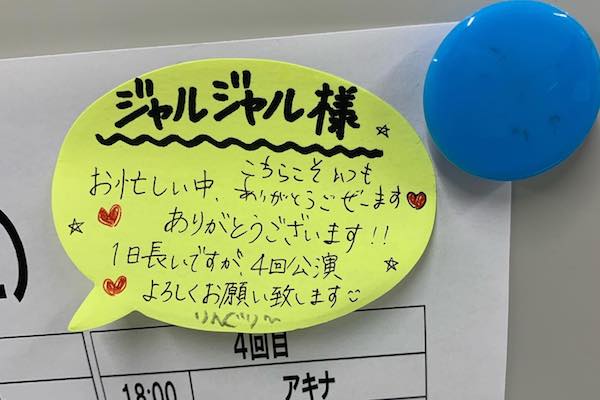 ジャルジャル様
お忙しい中、
こちらこそ いつも
ありがとうごぜーます
ありがとうございます!!
1日長いですが、4回公演
よろしくお願い致します
4回目
18:00 アキナ